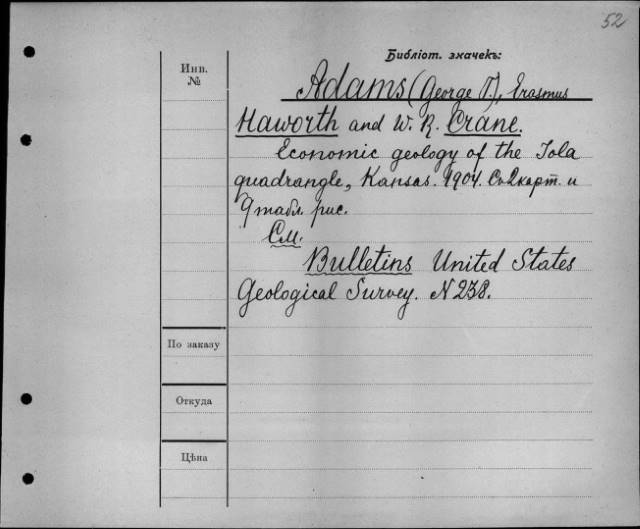 52
Библіот. значекъ:
Инв.
№
Adams (George I.), Erasmus
Haworth and W. R. Crane.
Economic geology of the Iola
quadrangle, Kansas. 1904. Съ 2 карт. и
9 табл. рис.
См.
Bulletins United States
Geological Survey. N 238.
По заказу
Откуда
Цѣна